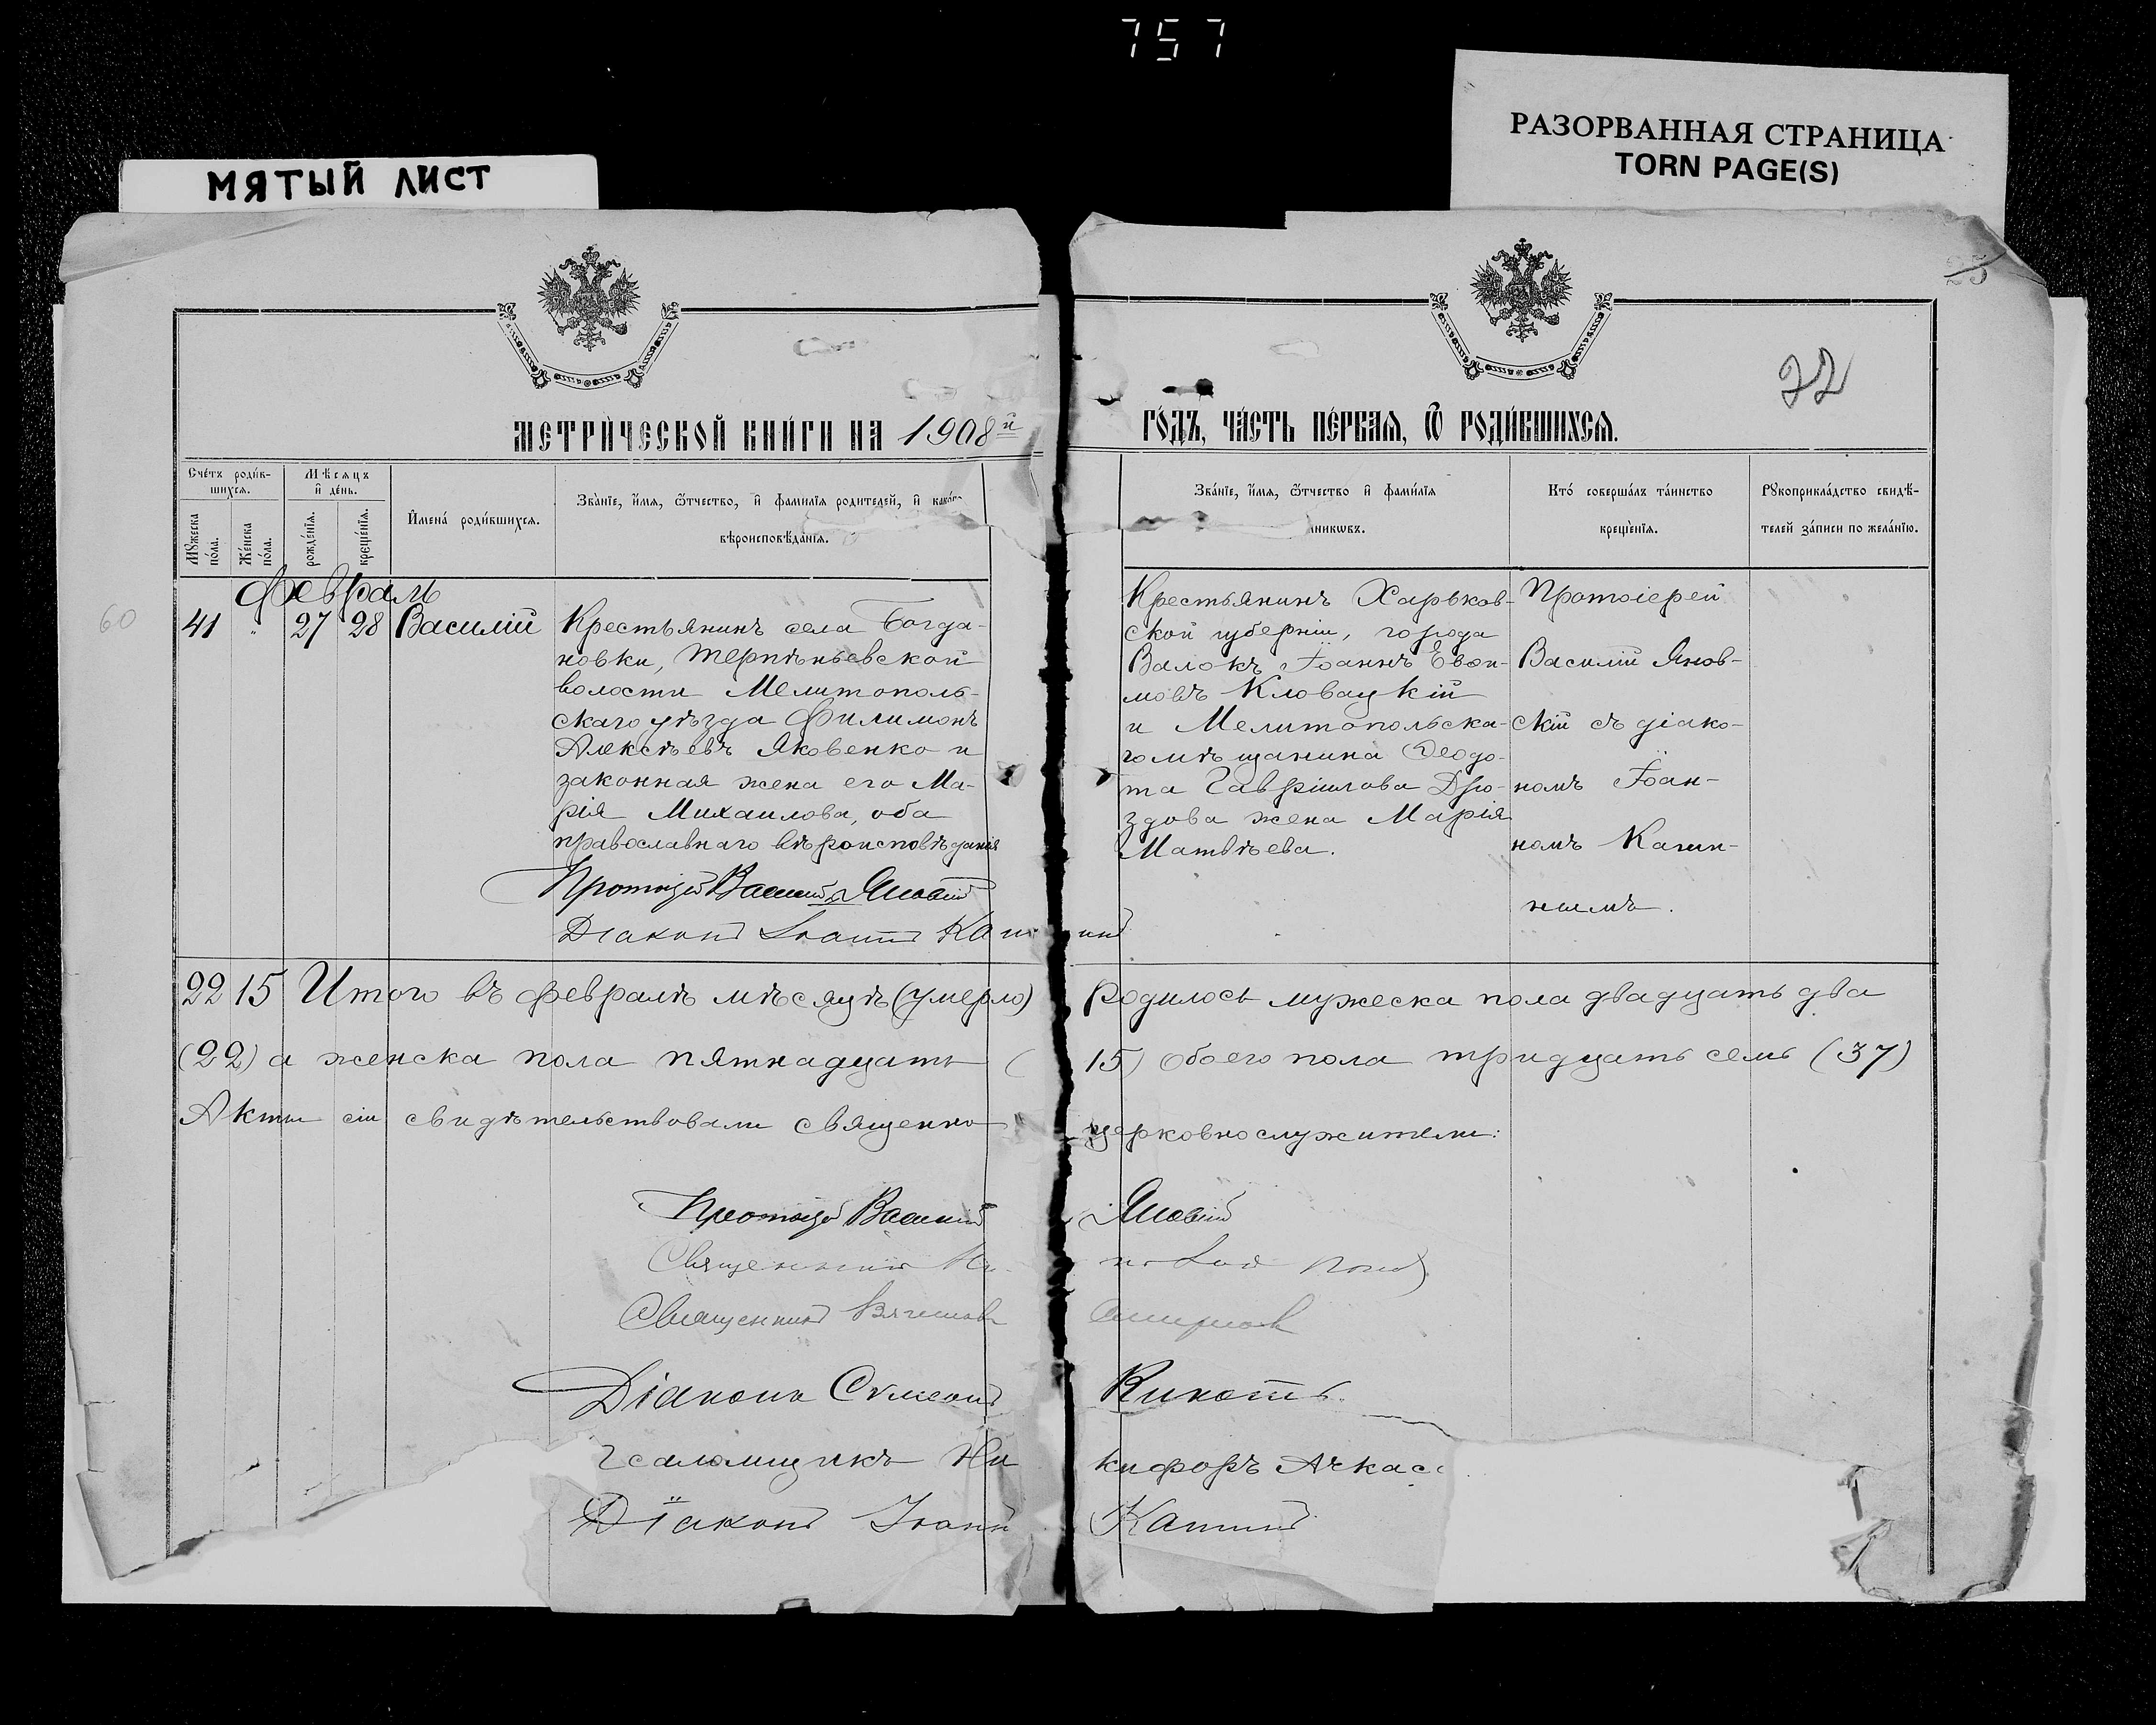 757
РАЗОРВАННАЯ СТРАНИЦА
TORN PAGE(S)
МЯТЫЙ ЛИСТ
25
32
МЕТРИ́ЧЕСКОЙ КНИ́ГИ НА 1908й ГО́ДЪ, ЧА́СТЬ ПЕ́РВАЯ, Ѿ РОДИ́ВШИХСЯ.
Сче́тъ роди́в-
шихся.
Мѣсяцъ
и де́нь.
Мꙋжеска по́ла.
Же́нска по́ла.
рожде́нїѧ.
креще́нїѧ.
Имена́ роди́вшихся.
Зва́нїе, и́мя, ѻ҆́тчество, и фами́лїя родителей, и како́г
вѣроисповѣ́данїя.
Зва́нїе, и́мя, ѻ҆́тчество и фами́лїя
никовъ.
Кто́ соверша́лъ та́инство
креще́нїя.
Рꙋкоприкла́дство свидѣ́-
телей за́писи по жела́нїю.
Февраль
60
41 " 27 28 Василій
Крестьянинъ села Богда-
новки, Терпѣньевской
волости Мелитополь-
скаго уѣзда Филимонъ
Алексѣевъ Яковенко и
законная жена его Ма-
рія Михаилова, оба
православнаго вѣроисповѣданія
Крестьянинъ Харьков-
ской губерніи, города
Валокъ Іоаннъ Евѳи-
мовъ Кловацкій
и Мелитопольска-
го мѣщанина Ѳеодо-
та Гавріилова Дро-
здова жена Марія
Матвѣева.
Протоіерей
Василій Янов-
скій съ діако-
номъ Іоан-
номъ Кашин-
нымъ.
Протоіерей Василій Яновскій
Діаконъ Іоаннъ Кашинъ
22 15 Итого въ февралѣ мѣсяцѣ (умерло) родилось мужеска пола двадцать два
(22) а женска пола пятнадцать (15) обоего пола тридцать семь (37)
Акты сіи свидѣтельствовали священно церковнослужители:
Протоіерей Василій Яновскій
Священникъ
Священникъ Вячеславъ Смирновъ
Діаконъ Сѵмеонъ Кикоть.
саломщикъ Никифоръ Ачкас
Діаконъ Іоаннъ Кашинъ